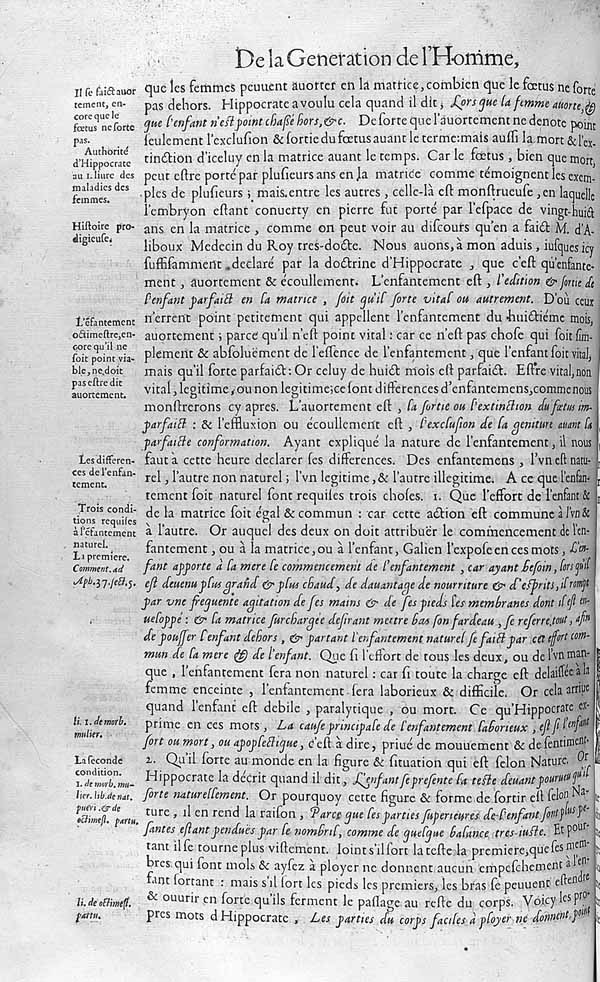 De la Generation de l'Homme,
que les femmes peuuent auorter en la matrice, combien que le fœtus ne sorte
pas dehors. Hippocrate a voulu cela quand il dit, Lors que la femme auorte, &
que l'enfant n'est point chassé hors, &c. De sorte que l'auortement ne denote point
seulement l'exclusion & sortie du fœtus auant le terme: mais aussi la mort & l'ex-
tinction d'iceluy en la matrice auant le temps. Car le fœtus, bien que mort,
peut estre porté par plusieurs ans en la matrice comme témoignent les exem-
ples de plusieurs; mais entre les autres, celle-là est monstrueuse, en laquelle
l'embryon estant conuerty en pierre fut porté par l'espace de vingt-huict
ans en la matrice, comme on peut voir au discours qu'en a faict M. d'A-
liboux Medecin du Roy tres-docte. Nous auons, à mon aduis, iusques icy
suffisamment declaré par la doctrine d'Hippocrate, que c'est qu'enfante-
ment, auortement & écoulement. L'enfantement est, l'edition & sortie de
l'enfant parfaict en la matrice, soit qu'il sorte vital ou autrement. D'où ceux
n'errent point petitement qui appellent l'enfantement du huictiéme mois,
auortement; parce qu'il n'est point vital: car ce n'est pas chose qui soit sim-
plement & absoluëment de l'essence de l'enfantement, que l'enfant soit vital,
mais qu'il sorte parfaict: Or celuy de huict mois est parfaict. Estre vital, non
vital, legitime, ou non legitime; ce sont differences d'enfantemens, comme nous
monstrerons cy apres. L'auortement est, la sortie ou l'extinction du fœtus im-
parfaict: & l'effluxion ou écoulement est, l'exclusion de la geniture auant la
parfaicte conformation. Ayant expliqué la nature de l'enfantement, il nous
faut à cette heure declarer ses differences. Des enfantemens, l'vn est natu-
rel, l'autre non naturel; l'vn legitime, & l'autre illegitime. A ce que l'enfan-
tement soit naturel sont requises trois choses. 1. Que l'effort de l'enfant &
de la matrice soit égal & commun: car cette action est commune à l'vn &
à l'autre. Or auquel des deux on doit attribuër le commencement de l'en-
fantement, ou à la matrice, ou à l'enfant, Galien l'expose en ces mots, L'en-
fant apporte à sa mere le commencement de l'enfantement, car ayant besoin, lors qu'il
est deuenu plus grand & plus chaud, de dauantage de nourriture & d'esprits, il rompt
par vne frequente agitation de ses mains & de ses pieds les membranes dont il est en-
ueloppé: & la matrice surchargée desirant mettre bas son fardeau, se resserre, tout, afin
de pousser l'enfant dehors, & partant l'enfantement naturel se faict par cet effort com-
mun de la mere & de l'enfant. Que si l'effort de tous les deux, ou de l'vn man-
que, l'enfantement sera non naturel: car si toute la charge est delaissée à la
femme enceinte, l'enfantement sera laborieux & difficile. Or cela arriue
quand l'enfant est debile, paralytique, ou mort. Ce qu'Hippocrate ex-
prime en ces mots, La cause principale de l'enfantement laborieux, est si l'enfant
sort ou mort, ou apoplectique, c'est à dire, priué de mouuement & de sentiment.
2. Qu'il sorte au monde en la figure & situation qui est selon Nature. Or
Hippocrate la décrit quand il dit, L'enfant se presente la teste deuant pourueu qu'il
sorte naturellement. Or pourquoy cette figure & forme de sortir est selon Na-
ture, il en rend la raison, Parce que les parties superieures de l'enfant sont plus pe-
santes estant penduës par le nombril, comme de quelque balance tres-iuste. Et pour-
tant il se tourne plus vistement. Ioint s'il sort la teste la premiere, que ses mem-
bres qui sont mols & aysez à ployer ne donnent aucun empeschement à l'en-
fant sortant: mais s'il sort les pieds les premiers, les bras se peuuent estendre
& ouurir en sorte qu'ils ferment le passage au reste du corps. Voicy les pro-
pres mots d'Hippocrate, Les parties du corps faciles à ployer ne donnent point
Il se faict auor
tement, en-
core que le
fœtus ne sorte
pas.
Authorité
d'Hippocrate
au 1. liure des
maladies des
femmes.
Histoire pro-
digieuse.
L'éfantement
octimestre, en-
core qu'il ne
soit point via-
ble, ne doit
pas estre dit
auortement.
Les differen-
ces de l'enfan-
tement.
Trois condi-
tions requises
à l'éfantement
naturel.
La premiere.
Comment. ad
Aph. 37. sect. 5.
li. 1. de morb.
mulier.
La seconde
condition.
1. de morb. mu-
lier. lib. de nat.
pueri & de
octimest. partu.
li. de octimest.
partu.